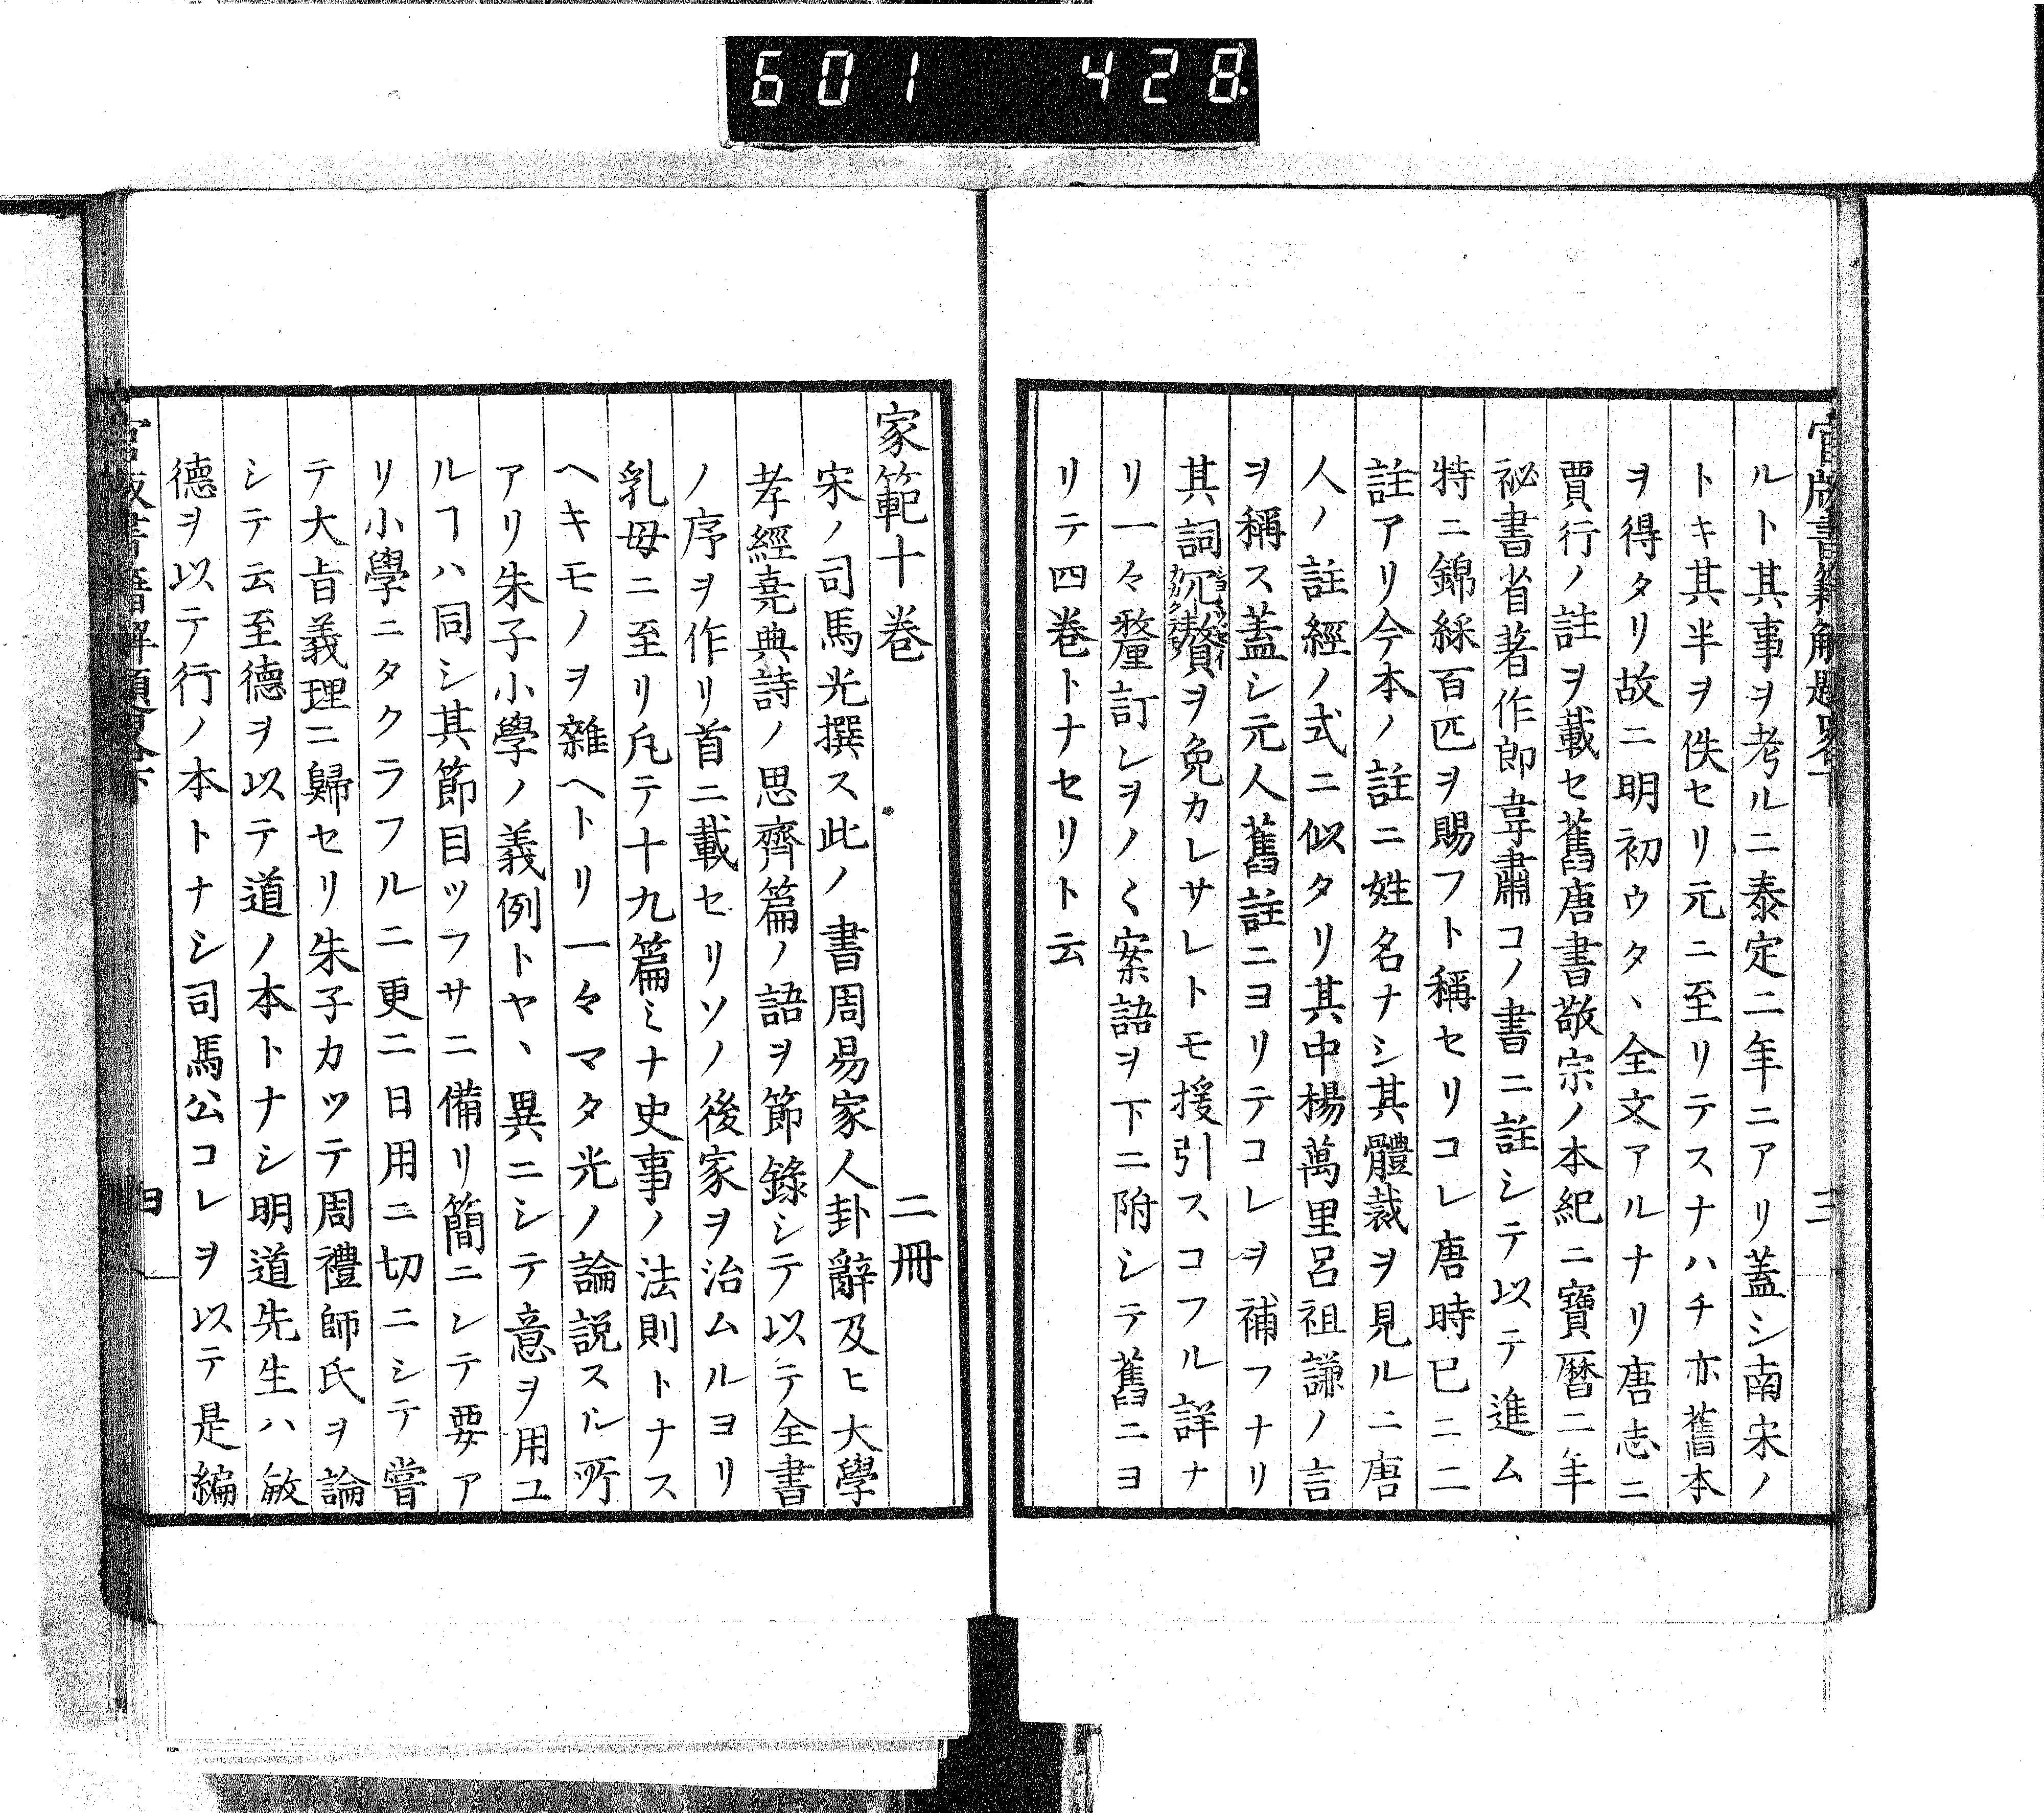 601 428
官版書籍解題畧卷下
三
ルト其事ヲ考ルニ泰定二年ニアリ蓋シ南宋ノ
トキ其半ヲ佚セリ元ニ至リテスナハチ亦舊本
ヲ得タリ故ニ明初ウタヽ全文アルナリ唐志ニ
賈行ノ註ヲ載セ舊唐書敬宗ノ本紀ニ寶曆二年
祕書省著作郎韋肅コノ書ニ註シテ以テ進ム
特ニ錦綵百匹ヲ賜フト稱セリコレ唐時已ニ二
註アリ今本ノ註ニ姓名ナシ其體裁ヲ見ルニ唐
人ノ註經ノ式ニ似タリ其中楊萬里呂祖謙ノ言
ヲ稱ス蓋シ元人舊註ニヨリテコレヲ補フナリ
其詞冗贅ヲ免カレサレトモ援引スコフル詳ナ
リ一々釐訂シヲノ〱案語ヲ下ニ附シテ舊ニヨ
リテ四巻トナセリト云
家範十巻 二冊
宋ノ司馬光撰ス此ノ書周易家人卦辭及ヒ大學
孝經堯典詩ノ思齊篇ノ語ヲ節錄シテ以テ全書
ノ序ヲ作リ首ニ載セリソノ後家ヲ治ムルヨリ
乳母ニ至リ凡テ十九篇ミナ史事ノ法則トナス
ヘキモノヲ雜ヘトリ一々マタ光ノ論説スル所
アリ朱子小學ノ義例トヤヽ異ニシテ意ヲ用ユ
ルヿハ同シ其節目ツフサニ備リ簡ニシテ要ア
リ小學ニタクラフルニ更ニ日用ニ切ニシテ嘗
テ大旨義理ニ歸セリ朱子カツテ周禮師氏ヲ論
シテ云至德ヲ以テ道ノ本トナシ明道先生ハ敏
德ヲ以テ行ノ本トナシ司馬公コレヲ以テ是編
官版書籍解題畧卷下
四